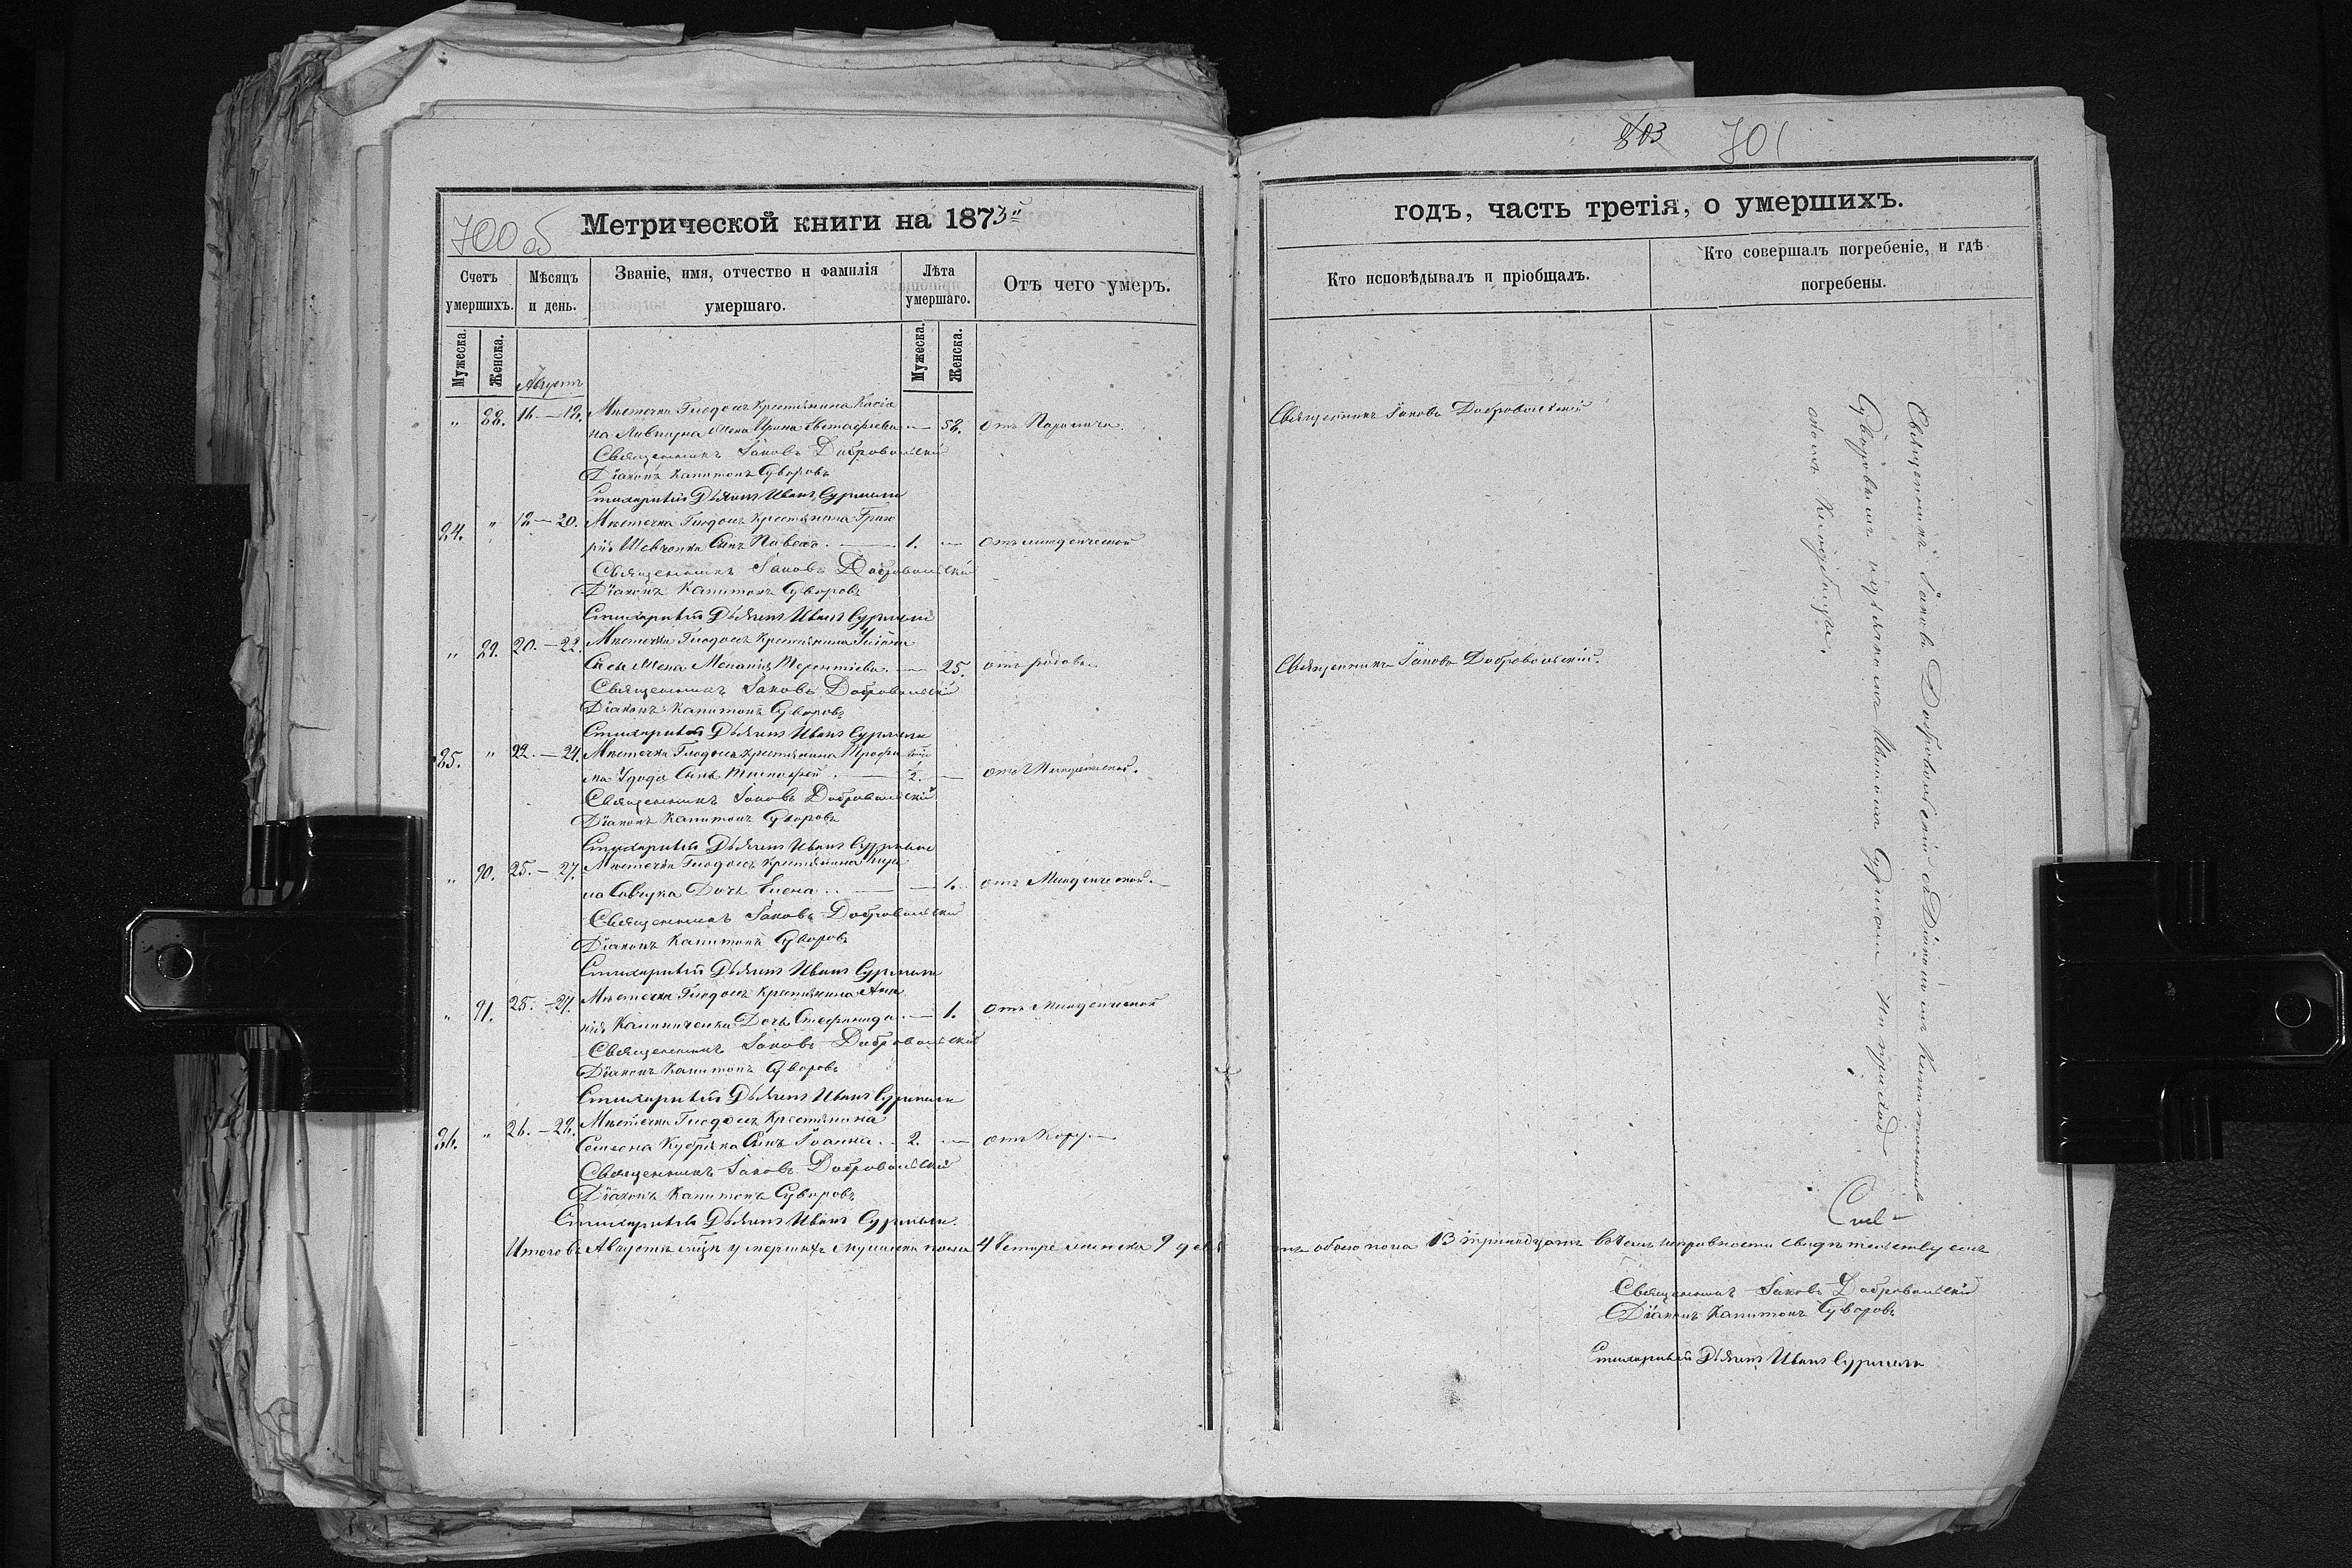 803 701
700 об
Метрической книги на 1873й
годъ, часть третія, о умершихъ.
Счетъ умершихъ.
Мѣсяцъ и день.
Званіе, имя, отчество и фамилія умершаго.
Лѣта умершаго.
Отъ чего умеръ.
Кто исповѣдывалъ и пріобщалъ.
Кто совершалъ погребеніе, и гдѣ погребены.
Мужеска.
Женска.
Августъ
Мужеска.
Женска.
" 88. 16.—18. Мѣстечка крестьянина Касіа
на жена Ирина Евстафіева — 58. отъ Паралича. Священникъ Іаковъ Добровольскій
Священникъ Іаковъ Добровольскій
Діаконъ Капитонъ Суворовъ
Стихарный Дьячекъ Иванъ
84. " 18—20. Мѣстечка крестьянина Григо
рія Шевченка Сынъ Павелъ. — 1. — отъ младенческой
Священникъ Іаковъ Добровольскій
Діаконъ Капитонъ Суворовъ
Стихарный Дьячекъ Иванъ
" 89. 20.—22. Мѣстечка крестьянина
жена Меланія Терентіева. — 25. отъ родовъ Священникъ Іаковъ Добровольскій.
Священникъ Іаковъ Добровольскій
Діаконъ Капитонъ Суворовъ
Стихарный Дьячекъ Иванъ
85. " 22.—24. Мѣстечка крестьянина Трофи
ма Удода Сынъ Тимофей. — 2. — отъ Младенческой.
Священникъ Іаковъ Добровольскій
Діаконъ Капитонъ Суворовъ
Стихарный Дьячекъ Иванъ
" 90. 25.—27. Мѣстечка крестьянина
на Савчука Дочь Елена.. — 1. отъ Младенческой.
Священникъ Іаковъ Добровольскій
Діаконъ Капитонъ Суворовъ
Стихарный Дьячекъ Иванъ
" 91. 25.—27. Мѣстечка крестьянина
Калиниченка Дочь Стефанида. — 1. отъ Младенческой
Священникъ Іаковъ Добровольскій
Діаконъ Капитонъ Суворовъ
Стихарный Дьячекъ Иванъ
86. " 26.—28. Мѣстечка Крестьянина
Семена Кубрака Сынъ Іоаннъ. 2. — отъ Кору
Священникъ Іаковъ Добровольскій
Діаконъ Капитонъ Суворовъ
Стихарный Дьячекъ Иванъ
Итого въ Августѣ мцѣ умершихъ мужеска пола 4 четыре женска 9 девять обоего пола 13 тринадцать въ чемъ исправности свидѣтельствуемъ
Священникъ Іаковъ Добровольскій
Діаконъ Капитонъ Суворовъ
Стихарный Дьячекъ Иванъ
Священникъ Іаковъ Добровольскій съ Діакономъ Капитономъ
Суворовымъ и дьячкомъ Иваномъ на приход
скомъ Кладбищѣ.